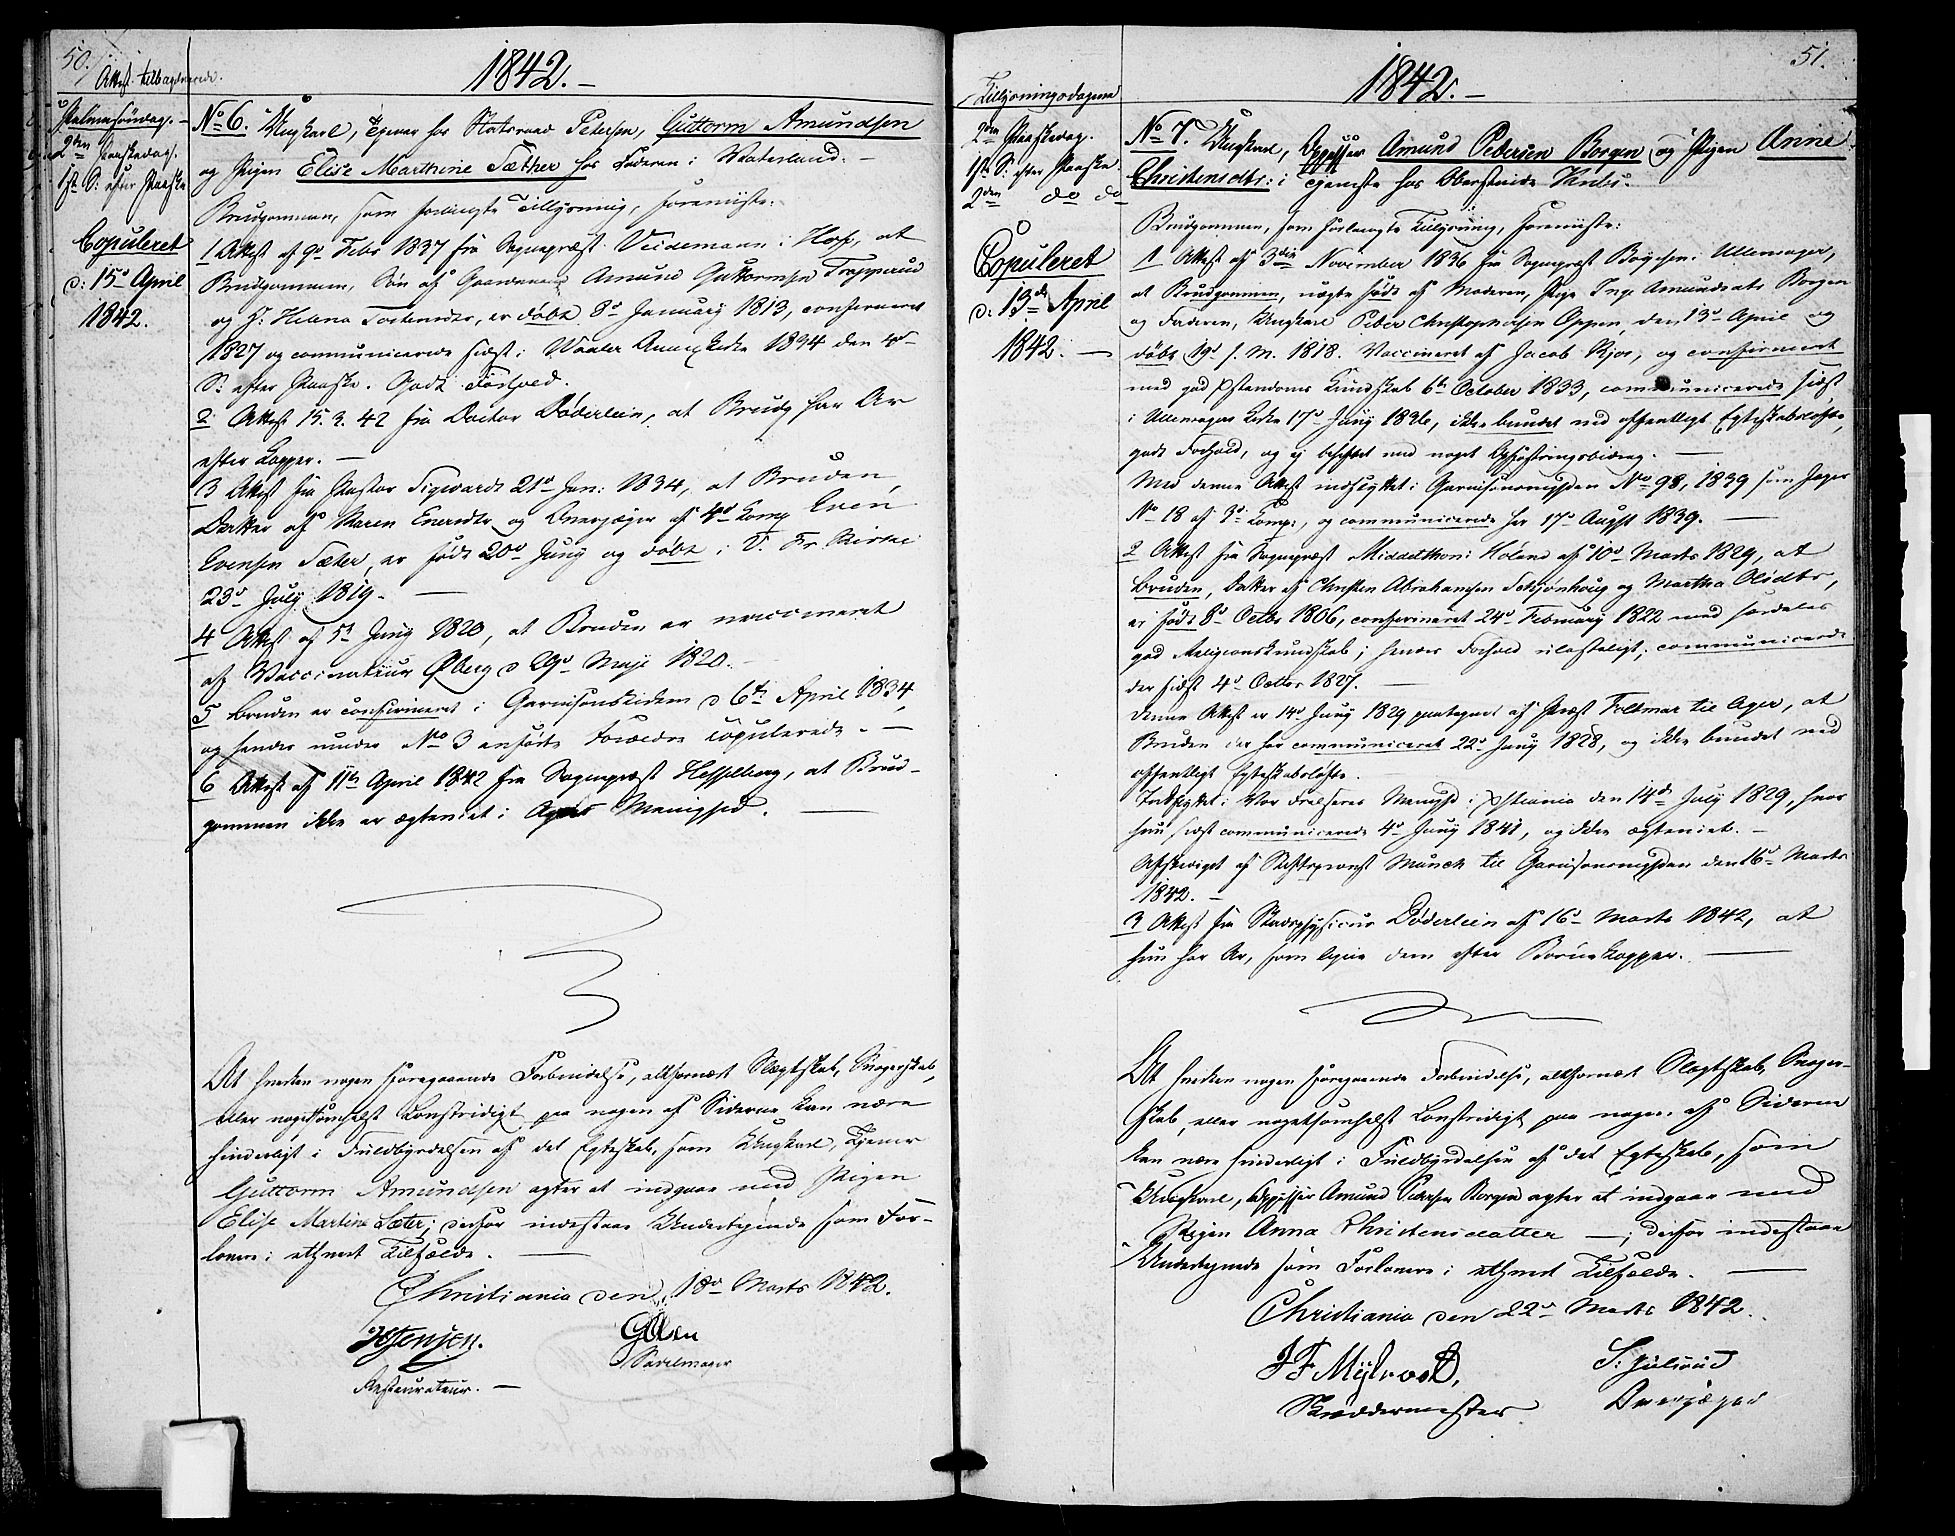 50.
Attest tilbageleverede.
1842.-
Palmesöndag. -
2den Paaskedag.
1ste S: efter Paaske
Copuleret
d: 15de April
1842.
No 6. Ungkarl, Tjener hos Statsraad Petersen, Guttorm Amundsen
og Pigen Elise Marthine Sæther hos Faderen i Vaterland. -
Brudgommen, som forlangte Tillysning, foreviiste:
1 Attest af 9de Febr 1837 fra Sognepræst Veidemann i Hof, at
Brudgommen, Sön af Gaardmand Amund Guttormsen Topperud
og H: Helena Torstensdtr, er döbt 8de Januarj 1813, confirmeret
1827 og communicerede sidst i Vaaler Annexkirke 1834 den 4de
S: efter Paaske. Godt Forhold.
2 Attest 15.3.42 fra Doctor Döderlein, at Brudg har Ar
efter Kopper. -
3 Attest fra Pastor Sigwardt 21de Jan: 1834, at Bruden,
Datter af Maren Enersdtr og Overjæger af 4de Komp Even
Evensen Sæter, er födt 20de Junij og döbt i V. Fr. Kirke
23de July 1819. -
4 Attest af 5te Junij 1820, at Bruden er vaccineret
af Vaccinateur Øberg d 29de Maji 1820. -
5 Bruden er confirmeret i Garnisonskirken d 6te April 1834,
og hendes under No 3 anförte Forældre copulerede. -
6 Attest af 11te April 1842 fra Sognepræst Hesselberg, at Brud-
gommen ikke er ægteviet i Agers Menighed. -
At hverken nogen foregaaende Forbindelse, altfornært Slægtskab, Svogerskab,
eller nogetsomhelst Lovstridigt paa nogen af Siderne kan være
hinderligt i Fuldbyrdelsen af det Egteskab, som Ungkarl, Tjener
Guttorm Amundsen agter at indgaae med Pigen
Elise Martine Sæter; derfor indestaae Undertegnede som For-
lovere i ethvert Tilfælde. -
Christiania den 18de Marts 1842.
Jensen.
Restaurateur. -
GOlsen
Sadelmager
51.
1842. -
Tillysningsdagene
2den Paaskedag.
1ste S: efter Paaske.
2den do do
Copuleret
d: 13de April
1842. -
No 7. Ungkarl, Opp Amund Pedersen Borgen og Pigen Anne
Christensdtr: i Tjeneste hos Oberstinde
Brudgommen, som forlangte Tillysning, foreviiste:
1 Attest af 3die November 1836 fra Sognepræst Böyesen i Ullensager,
at Brudgommen, uægte födt af Moderen, Pige Ing. Amundsdtr Borgen
og Faderen, Ungkarl Peder Christophersen Oppen, den 13de April og
döbt 19de s. M. 1818. Vaccineret af Jacob Kjos, og confirmeret
med god Xstendoms Kundskab 6te October 1833, communicerede sidst
i Ullensagers Kirke 17de Junij 1836, ikke bundet ved offentligt Egteskabslöfte,
godt Forhold, og ej beheftet med noget Opfostringsbidrag. -
Med denne Attest indflyttet i Garnisonsmghden No 98, 1839 som Jæger
No 18 af 3die Komp:, og communicerede her 17de August 1839. -
2 Attest fra Sognepræst Middelthon i Höland af 10de Marts 1829, at
Bruden, Datter af Christen Abrahamsen Setsjönhoug og Martha Olsdtr,
er födt 8de Octbr 1806, confirmeret 24de Februarj 1822 med særdeles
god Religionskundskab; hendes Forhold ulasteligt; communicerede
der sidst 4de Octbr 1827. -
Denne Attest er 14de Junij 1829 paategnet af Præst Feltmar til Ager, at
Bruden der har communiceret 22de Junij 1828, og ikke bundet ved
offentligt Egteskabslöfte.
Indflyttet i Vor Frelsers Menighd i Xstiania den 14de July 1829, hvor
hun sidst communicerede 4de Junij 1841, og ikke ægteviet. -
Afskediget af Stiftsprovst Munch til Garnisonsmghden den 16de Marts
1842. -
3 Attest fra Stadsphysicus Döderlein af 16de Marts 1842, at
hun har Ar, som ligne dem efter Börnekopper. -
At hverken nogen foregaaende Forbindelse, altfornært Slægtskab, Svoger-
skab, eller nogetsomhelst Lovstridigt paa nogen af Siderne
kan være hinderligt i Fuldbyrdelsen af det Egteskab, som
Ungkarl, Amund Pedersen Borgen agter at indgaae med
Pigen Anna Christensdatter -; derfor indestaae
Undertegnede som Forlovere i ethvert Tilfælde. -
Christiania den 22de Marts 1842.
J F Myhrvold,
Skræddermester.
S: Julsrud
Overjæger